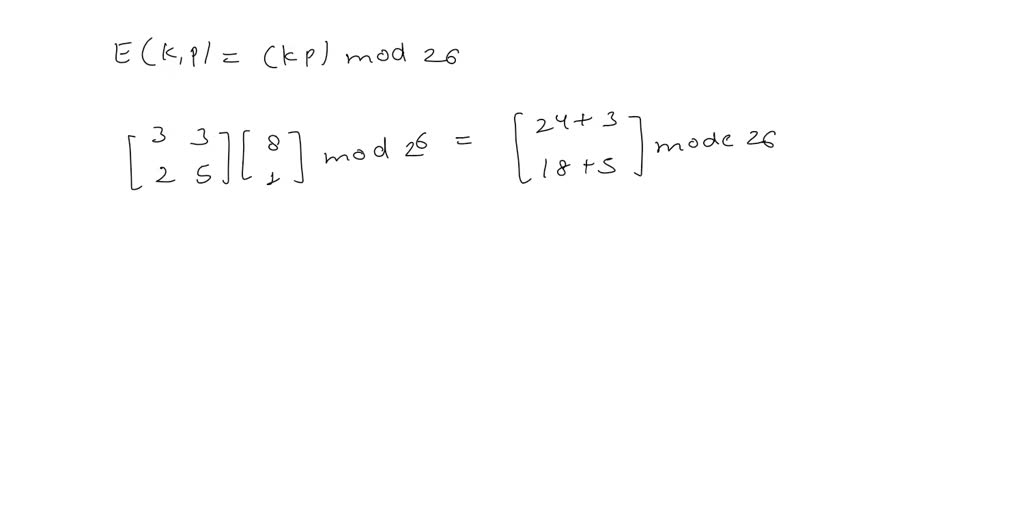 E(k,p) = (kp) mod 26
[3 3 2 5] [8 1] mod 26 = [24+3 18+5] mode 26